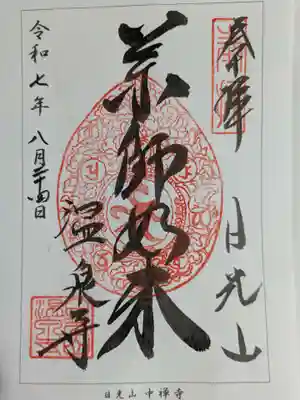 奉拝
日光山
薬師如来
温泉寺
令和七年 八月二十四日
日光山 中禅寺